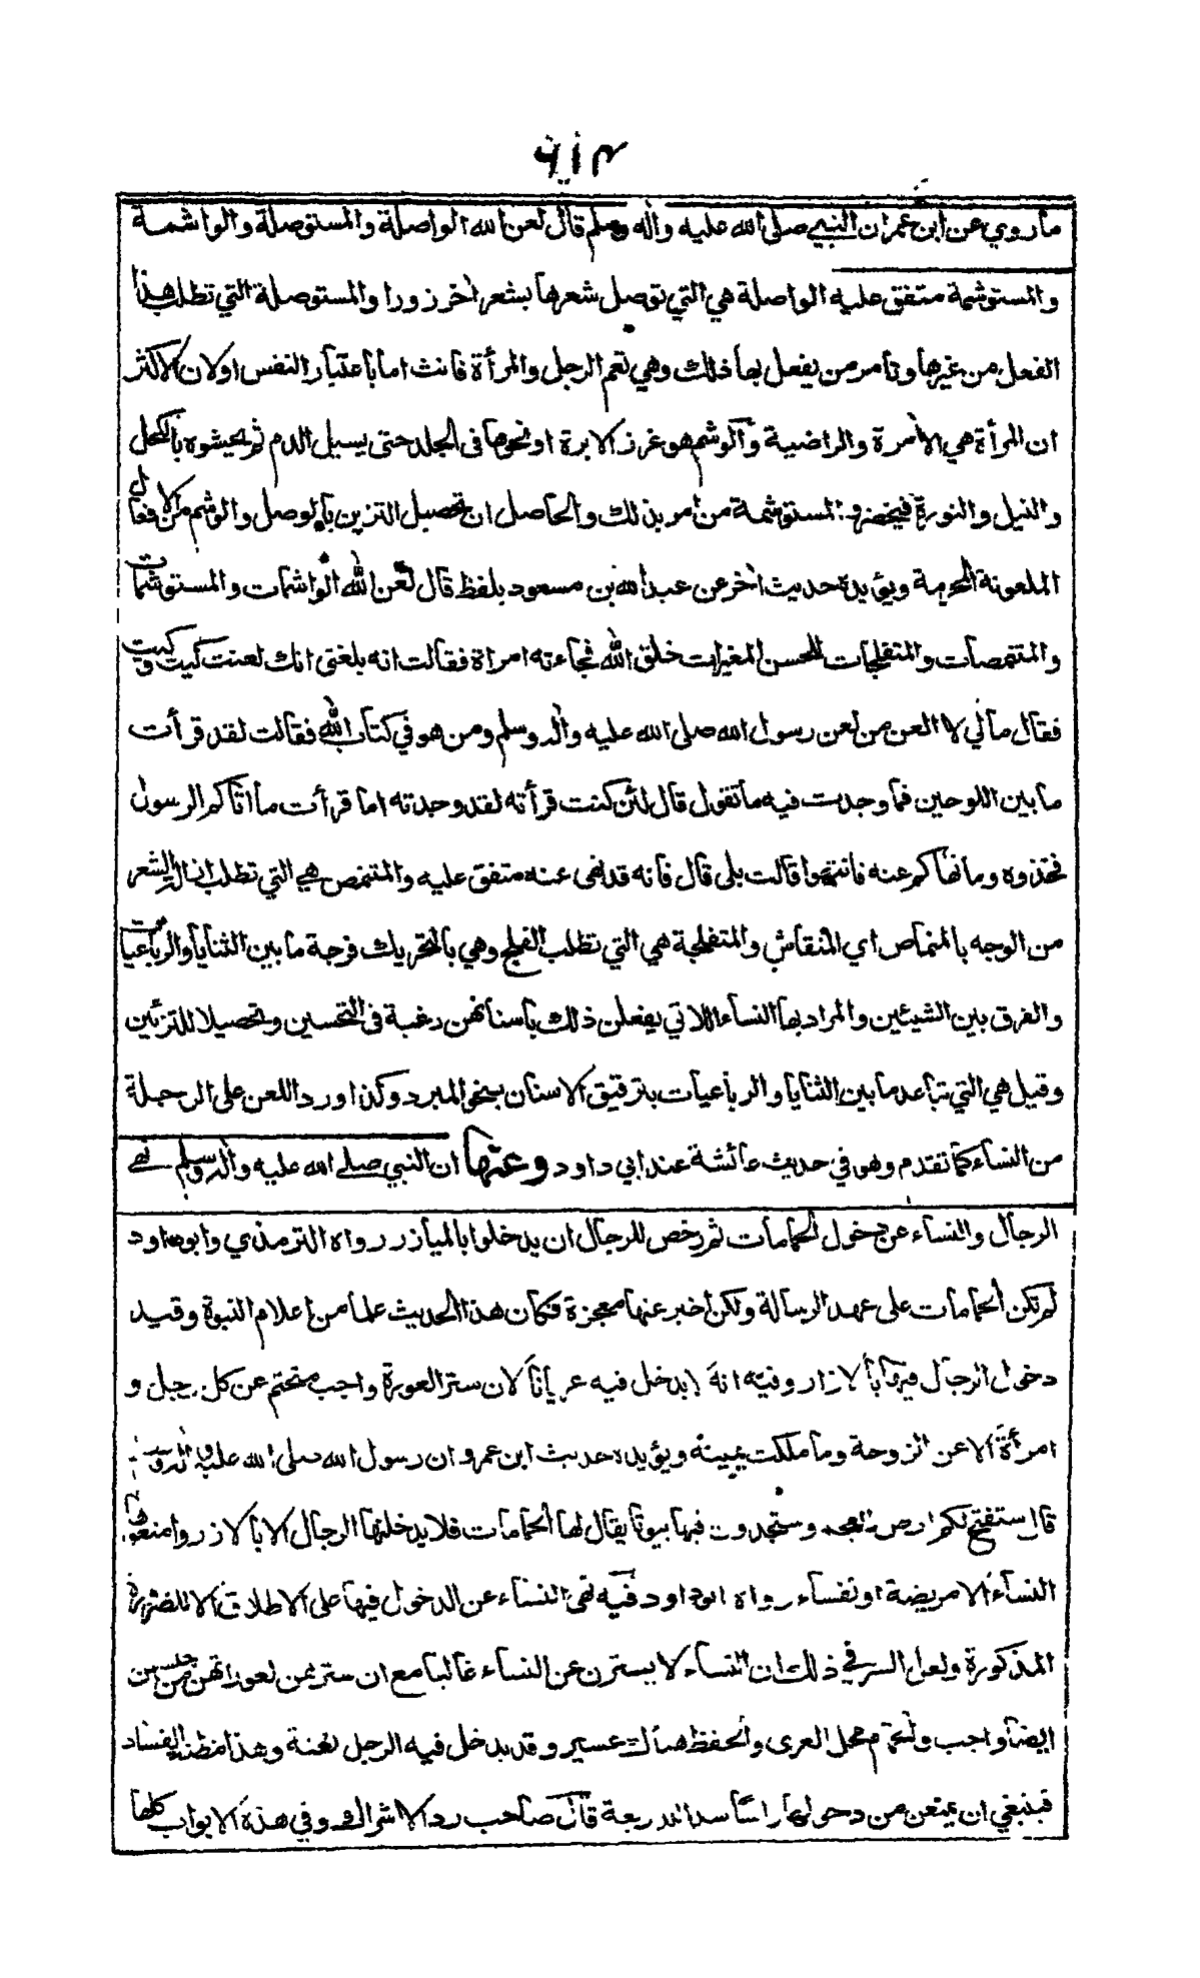 ما روي عن ابن عمران النبي صلى الله عليه واله وسلم قال لعن الله الواصلة والمستوصلة والواشمة
والمستوشمة متفق عليه الواصلة هي التي توصل شعرها بشعر اخر زورا والمستوصلة التي تطلب هذا
الفعل من غيرها وتأمر من يفعل بها ذلك وهي تعم الرجل والمرأة فانث اما باعتبار النفس اولان الاكثر
ان المرأة هي الامرة والراضية والوشم هو غرز الابرة او نحوها في الجلد حتى يسيل الدم ثم يحشوه بالكحل
والنيل والنورة فيخضر والمستوشمة من امر بذلك والحاصل ان تحصيل التزين بالوصل والوشم من الافعال
الملعونة المحرمة ويؤيده حديث اخر عن عبد الله بن مسعود بلفظ قال لعن الله الواشمات والمستوشمات
والمتنمصات والمتفلجات للحسن المغيرات خلق الله فجاءته امراة فقالت انه بلغني انك لعنت كيت وكيت
فقال مالي لا العن من لعن رسول الله صلى الله عليه واله وسلم ومن هو في كتاب الله فقالت لقد قرأت
ما بين اللوحين فما وجدت فيه ما تقول قال لئن كنت قرأته لقد وجدته اما قرأت ما اتاكم الرسول
فخذوه وما نهاكم عنه فانتهوا قالت بلى قال فانه قد نهى عنه متفق عليه والمتنمص هي التي تطلب ازالة الشعر
من الوجه بالمنماص اي المنقاش والمتفلجة هي التي تطلب الفلج وهي بالتحريك فرجة ما بين الثنايا والرباعيات
والفرق بين الشيئين والمراد بها النساء اللاتي يفعلن ذلك باسنانهن رغبة في التحسين وتحصيلا للتزئين
وقيل هي التي تباعد ما بين الثنايا والرباعيات بترقيق الاسنان بنحو المبرد وكذا ورد اللعن على الرجلة
من النساء كما تقدم وهو في حديث عائشة عند ابي داود وعنها ان النبي صلى الله عليه واله وسلم نهى
الرجال والنساء عن دخول الحمامات ثم رخص للرجال ان يدخلوا بالميازر رواه الترمذي وابو داود
لم تكن الحمامات على عهد الرسالة ولكن اخبر عنها معجزة فكان هذا الحديث علما من اعلام النبوة وقيد
دخول الرجال فيها بالازار وفيه انه لا يدخل فيه عريانا لان ستر العورة واجب متحتم عن كل رجل و
امرأة الا عن الزوجة وما ملكت يمينه ويؤيده حديث ابن عمرو ان رسول الله صلى الله عليه واله وسلم
قال ستفتح لكم ارض العجم وستجدون فيها بيوتا يقال لها الحمامات فلا يدخلنها الرجال الا بالازر وامنعوها
النساء الا مريضة او نفساء رواه ابو داود فيه نهى النساء عن الدخول فيها على الاطلاق الا للضرورة
المذكورة ولعل السر في ذلك ان النساء لا يسترن عن النساء غالبا مع ان سترهن لعوراتهن من جنسهن
ايضا واجب والحمام محل العرى والحفظ هنالك عسير وقد يدخل فيه الرجل بغتة وهذا مظنة الفساد
فينبغي ان يمتعن من دخولها راسا سدا للذريعة قال صاحب رد الاشراك وفي هذه الابواب كلها